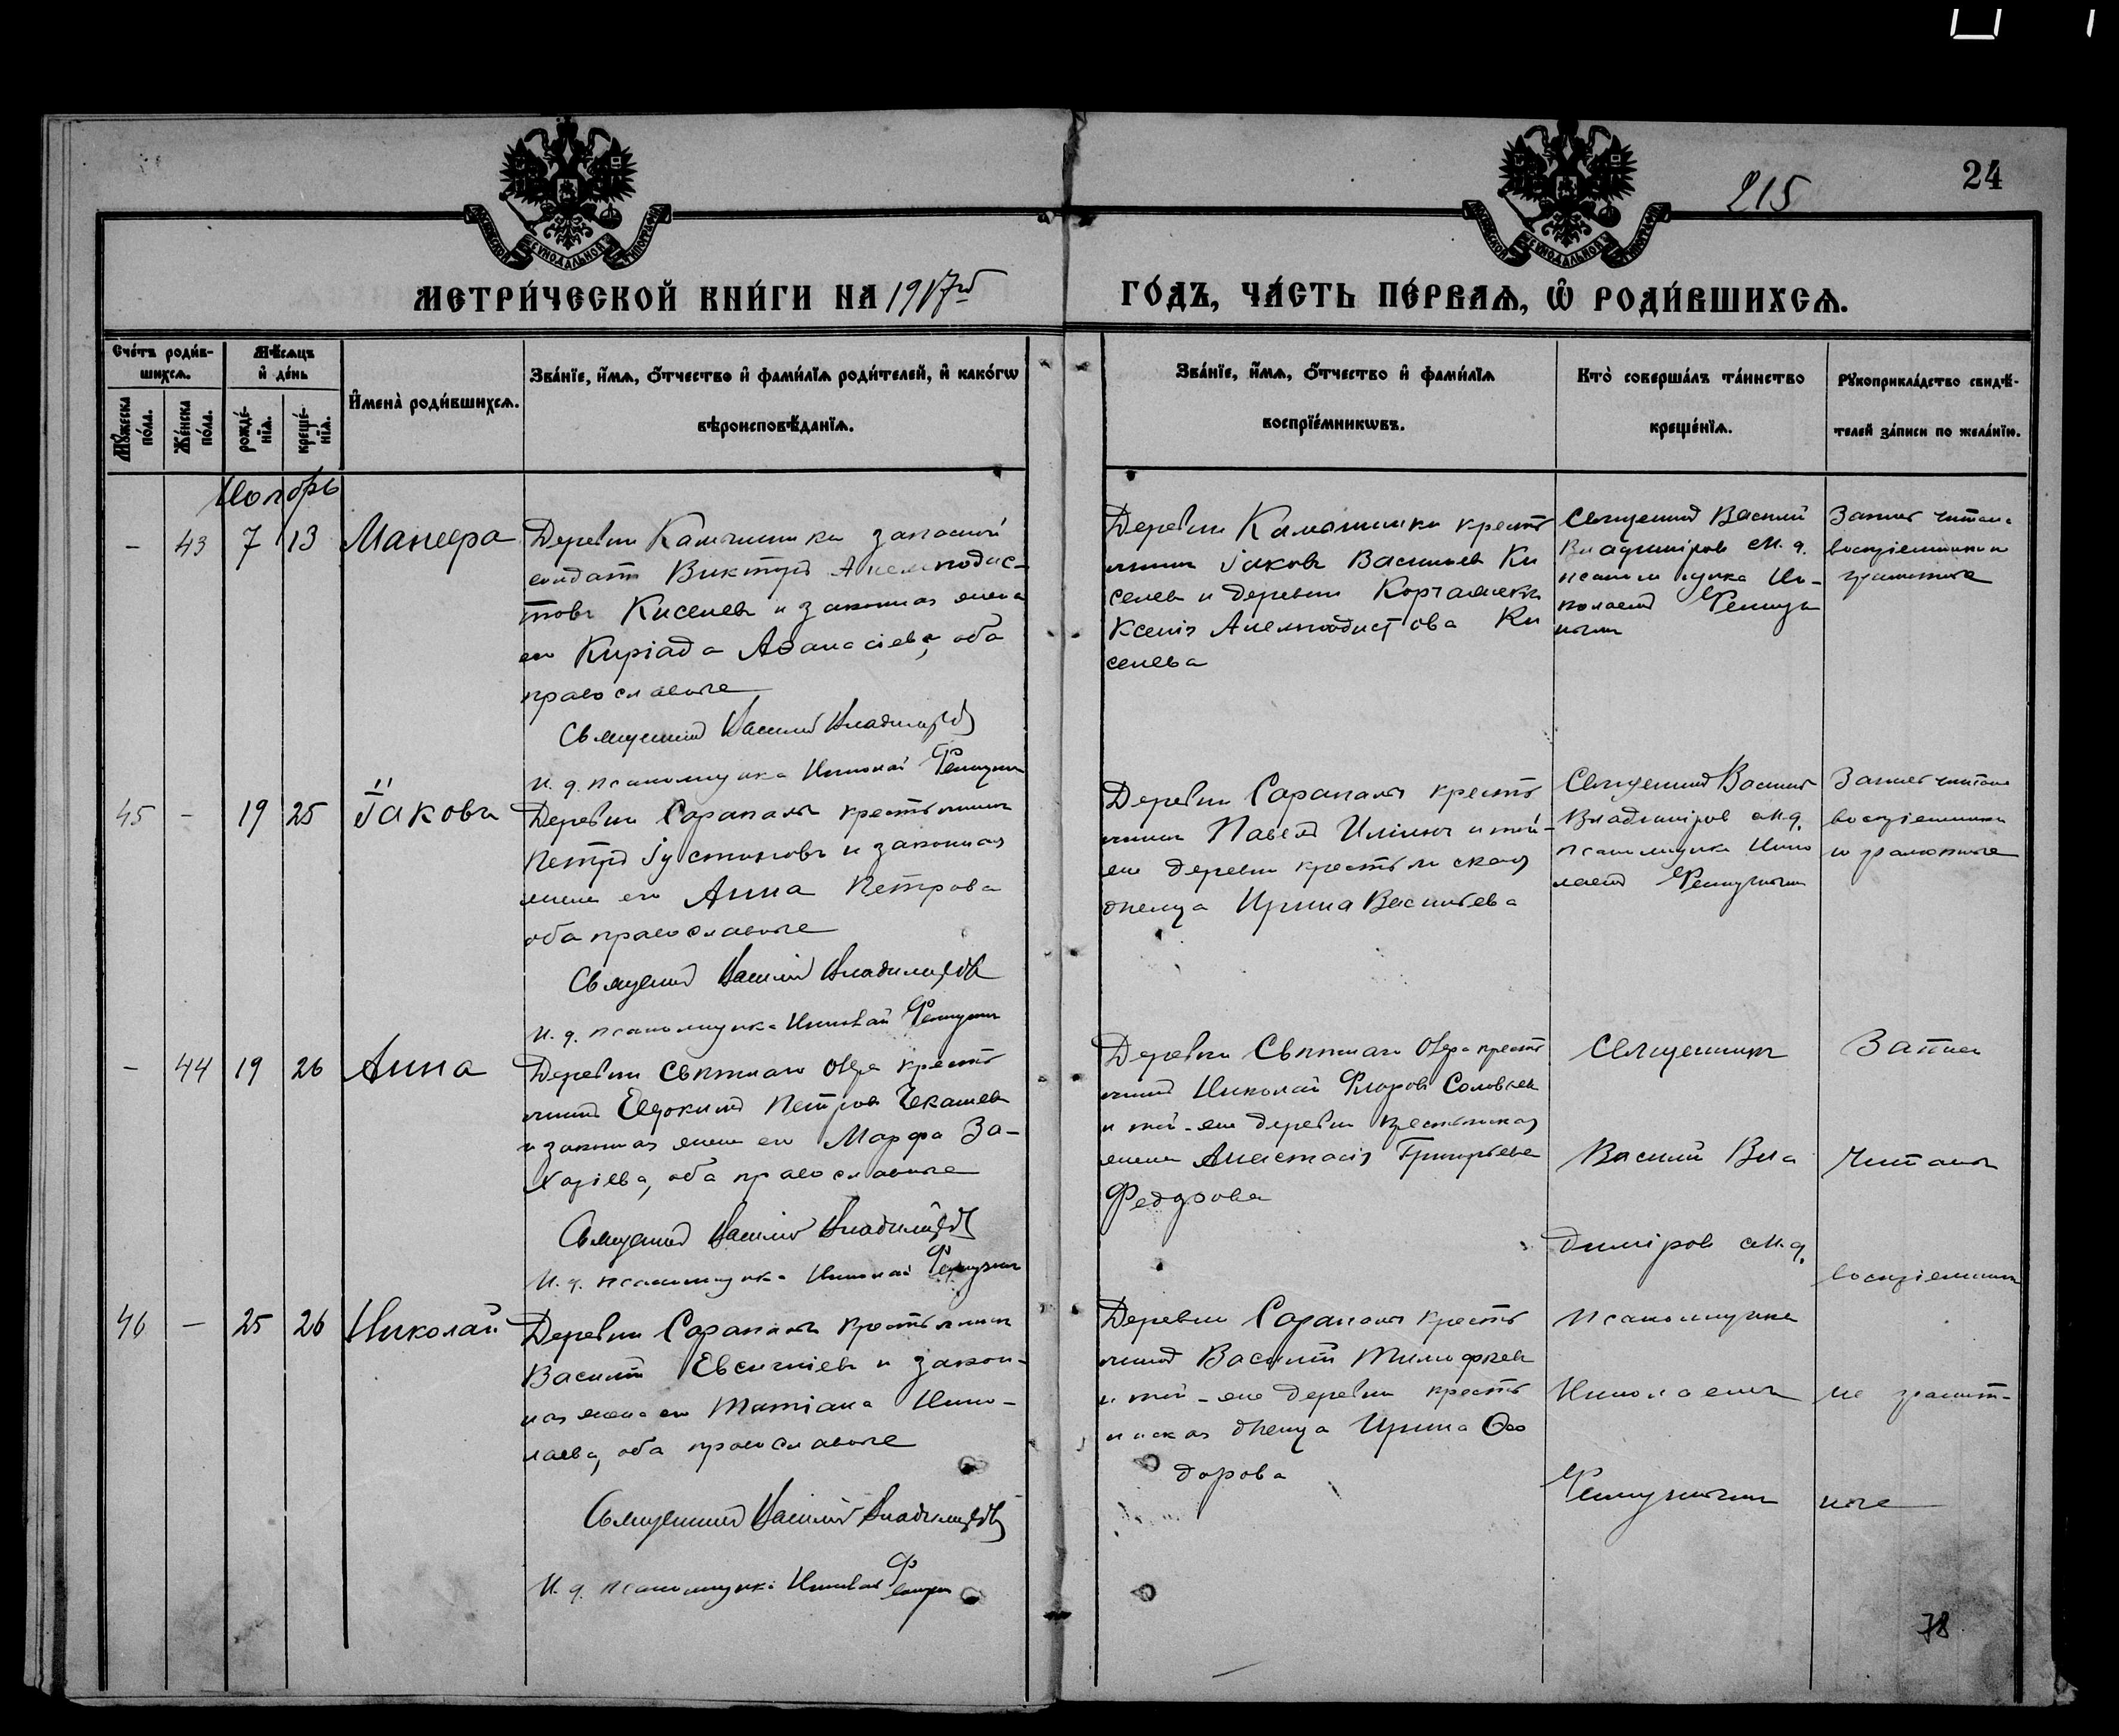 215
24
МЕТРИ́ЧЕСКОЙ КНИ́ГИ НА 1917й
ГО́ДЪ, ЧА́СТЬ ПЕ́РВАѦ, Ѡ҆ РОДИ́ВШИХСѦ.
Сче́тъ роди́в-
шихсѧ.
Мꙋ́жеска по́ла.
Же́нска по́ла.
Мѣ́сѧцъ
и҆ де́нь
рожде́-
нїѧ.
креще́-
нїѧ.
И҆мена̀ роди́вшихсѧ.
Зва́нїе, и҆́мѧ, о҆́тчество и҆ фами́лїѧ роди́телей, и҆ како́гѡ
вѣроисповѣ́данїѧ.
Зва́нїе, и҆́мѧ, о҆́тчество и҆ фами́лїѧ
воспрїе́мникѡвъ.
Кто̀ соверша́лъ та́инство
креще́нїѧ.
Рꙋкоприкла́дство свидѣ́-
телей за́писи по жела́нїю.
Ноябрь
– 43 7 13 Манефа
Деревни Камышинка запасный
солдатъ Викторъ Анемподис-
товъ Киселевъ и законная жена
его Киріада Аѳанасіева, оба
православные
Священникъ Василій Владиміровъ
И. д. псаломщика Николай
Деревни Камышинки кресть
янинъ Іаковъ Васильевъ Ки
селевъ и деревни
Ксенія Анемподистова Ки
селева
Священникъ Василій
Владиміровъ с И. д.
псаломщика Ни-
колаемъ
Записъ читан.
воспріемники
грамотные
45 – 19 25 Іаковъ
Деревни Сарапалъ крестьянинъ
Петръ Іустиновъ и законная
жена его Анна Петрова
оба православные
Священникъ Василій Владиміровъ
И. д. псаломщика Николай
Деревни Сарапалъ кресть
янинъ Павелъ Ильинъ и той-
же деревни крестьянская
дѣвица Ирина Васильева
Священникъ Василій
Владиміровъ с И. д.
псаломщика Нико
лаемъ
Записъ читана
воспріемники
грамотные
– 44 19 26 Анна
Деревни Свѣтлаго Озера кресть
янинъ Евдокимъ Петровъ Чекашевъ
и законная жена его Марфа За-
харіева, оба православные
Священникъ Василій Владиміровъ
И. д. псаломщика Николай
Деревни Свѣтлаго Озера кресть
янинъ Николай Флоровъ Соловьевъ
и той-же деревни крестьянская
жена Анастасія Григорьева
Федорова
Священникъ
Василій Вла
диміровъ с И. д.
псаломщика
Николаемъ
Запись
Читана
воспріемники
не грамот-
ные
46 – 25 26 Николай
Деревни Сарапалъ крестьянинъ
Василій Евсигніевъ и закон-
ная жена его Татіана Нико-
лаева, оба православные
Священникъ Василій Владиміровъ
И. д. псаломщика Николай
Деревни Сарапалъ кресть
янинъ Василій Тимофѣевъ
и той-же деревни кресть
янская дѣвица Ирина Ѳео
дорова
78